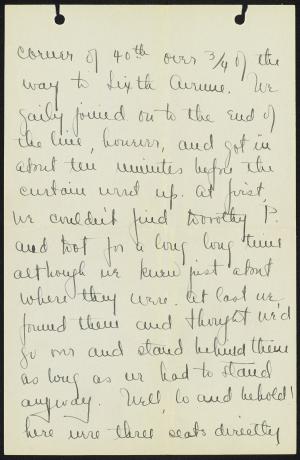 corner of 40th over 3/4 of the
way to Sixth Avenue. We
gaily joined on to the end of
the line, however, and got in
about ten minutes before the
curtain went up. At first,
we couldn't find Dorothy P.
and not for a long long time
although we knew just about
where they were. At last we
found them and thought we'd
go over and stand behind them
as long as we had to stand
anyway. Well, lo and behold!
here were three seats directly